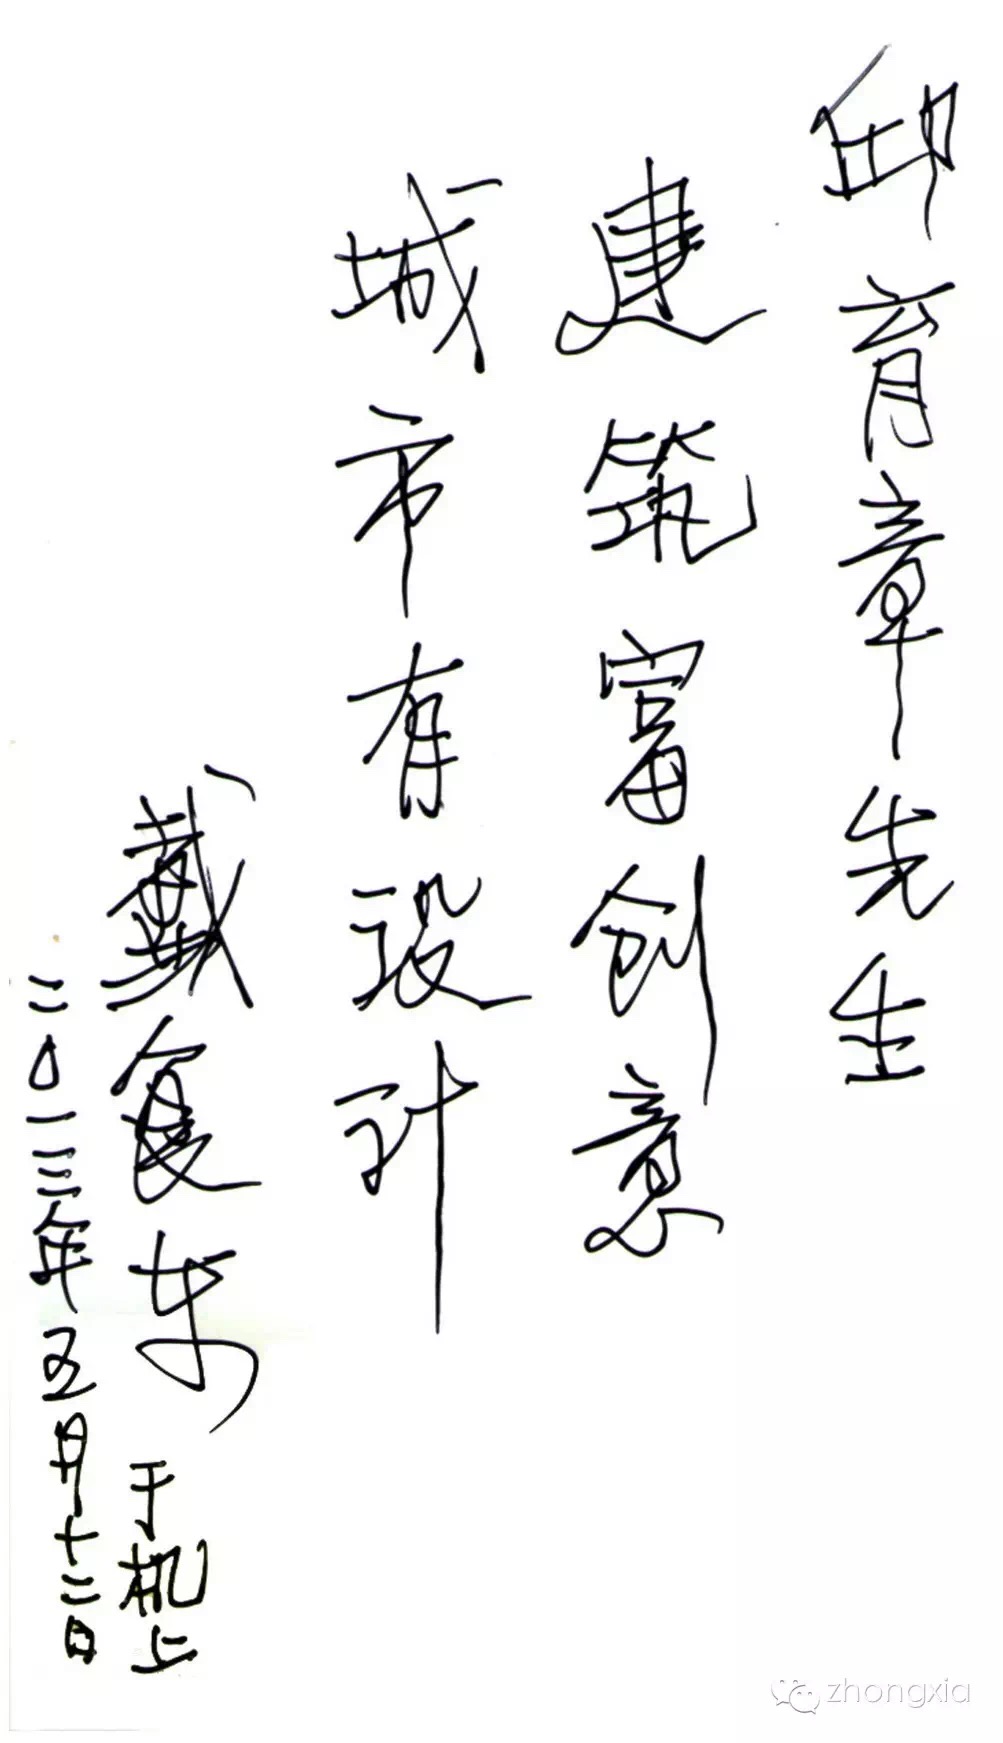 邱育章先生
建筑富创意
城市有设计
戴东 于机上
二〇一三年五月十二日
zhongxia